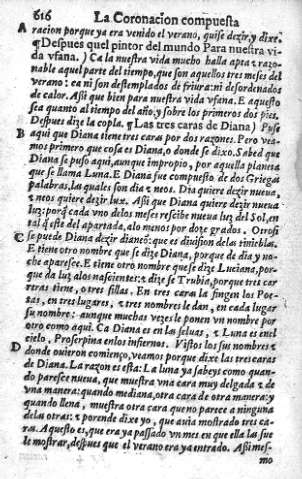 616 La Coronacion compuesta
A racion porque ya era venido el verano, quise dezir, y dixe.
¶Despues quel pintor del mundo Para nuestra vi-
da vfana.) Ca la nuestra vida mucho halla apta z razo-
nable aquel parte del tiempo, que son aquellos tres meses del
verano: ca ni son destemplados de friura: ni desordenados
de calor. Assi que bien para nuestra vida vfana. E aquesto
sea quanto al tiempo del año, y sobre los primeros dos pies.
Despues dize la copla. ¶Las tres caras de Diana) Puse
B aqui que Diana tiene tres caras por dos razones. Pero vea-
mos primero que cosa es Diana, o donde se dixo. Sabed que
Diana se puso aqui, aunque impropio, por aquella planeta
que se llama Luna. E Diana fue compuesto de dos Griegas
palabras, las quales son dia z neos. Dia quiere dezir nueua,
z neos quiere dezir lux. Assi que Diana quiere dezir nueua
luz: porq̃ cada vno delos meses rescibe nueua luz del Sol, en
tal q̃ este del apartada, alo menos por doze grados. Otrosi
C se puede Diana dezir dianeõ: que es diuision delas tinieblas.
E tiene otro nombre que se dize Diana, porque de dia y no-
che aparesce. E tiene otro nombre que se dize Luciana, por-
que da luz alos nascientes: z dize se Trubia, porque tres car
reras tiene, o tres sillas. En tres caras la fingen los Poe-
tas, en tres lugares, z tres nombres le dan, en cada lugar
su nombre: aunque muchas vezes le ponen vn nombre por
otro como aqui. Ca Diana es en las seluas, z Luna es enel
cielo, Proserpina en los infiernos. Vistos los sus nombres z
D donde ouieron comienço, veamos porque dixe las tres caras
de Diana. La razon es esta: La luna ya sabeys como quan-
do paresce nueua, que muestra vna cara muy delgada z de
vna manera: quando mediana, otra cara de otra manera: y
quando llena, muestra otra cara que no paresce a ninguna
delas otras: z porende dixe yo, que auia mostrado tres ca-
ras. Aquesto es, que era ya passado vn mes en que ella las sue
le mostrar, despues que el verano era ya entrado. Assi mes-
mo